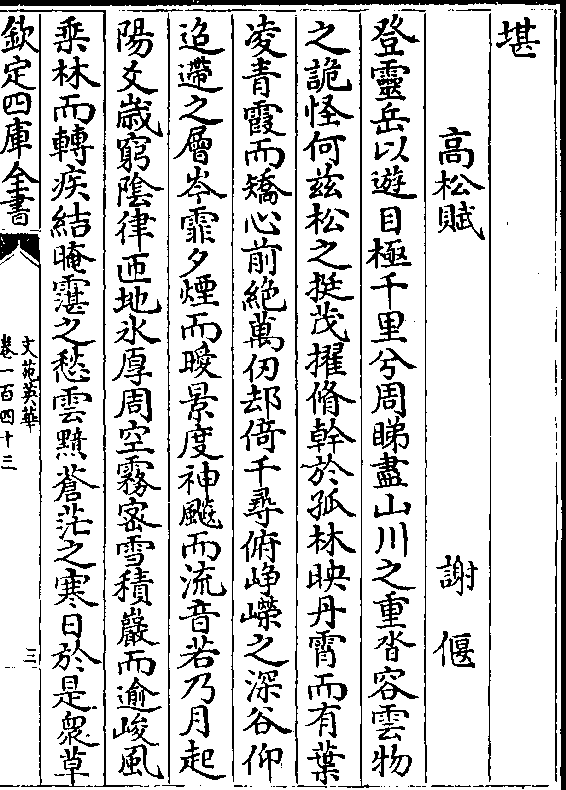 堪
高松賦 謝偃
登靈岳以遊目極千里兮周睇盡山川之重沓容雲物
之詭怪何兹松之挺茂擢脩幹於孤林映丹霄而有葉
凌青霞而矯心前絶萬仞却倚千尋俯崢嶸之深谷仰
迢遰之層岑霏夕煙而曖景度神飈而流音若乃月起
陽爻歲窮陰律迊地氷厚周空霧宻雪積巖而逾峻風
乗林而轉疾結晻霮之愁雲黯蒼茫之寒日於是衆草
欽定四庫全書
文苑英華
卷一百四十三
三